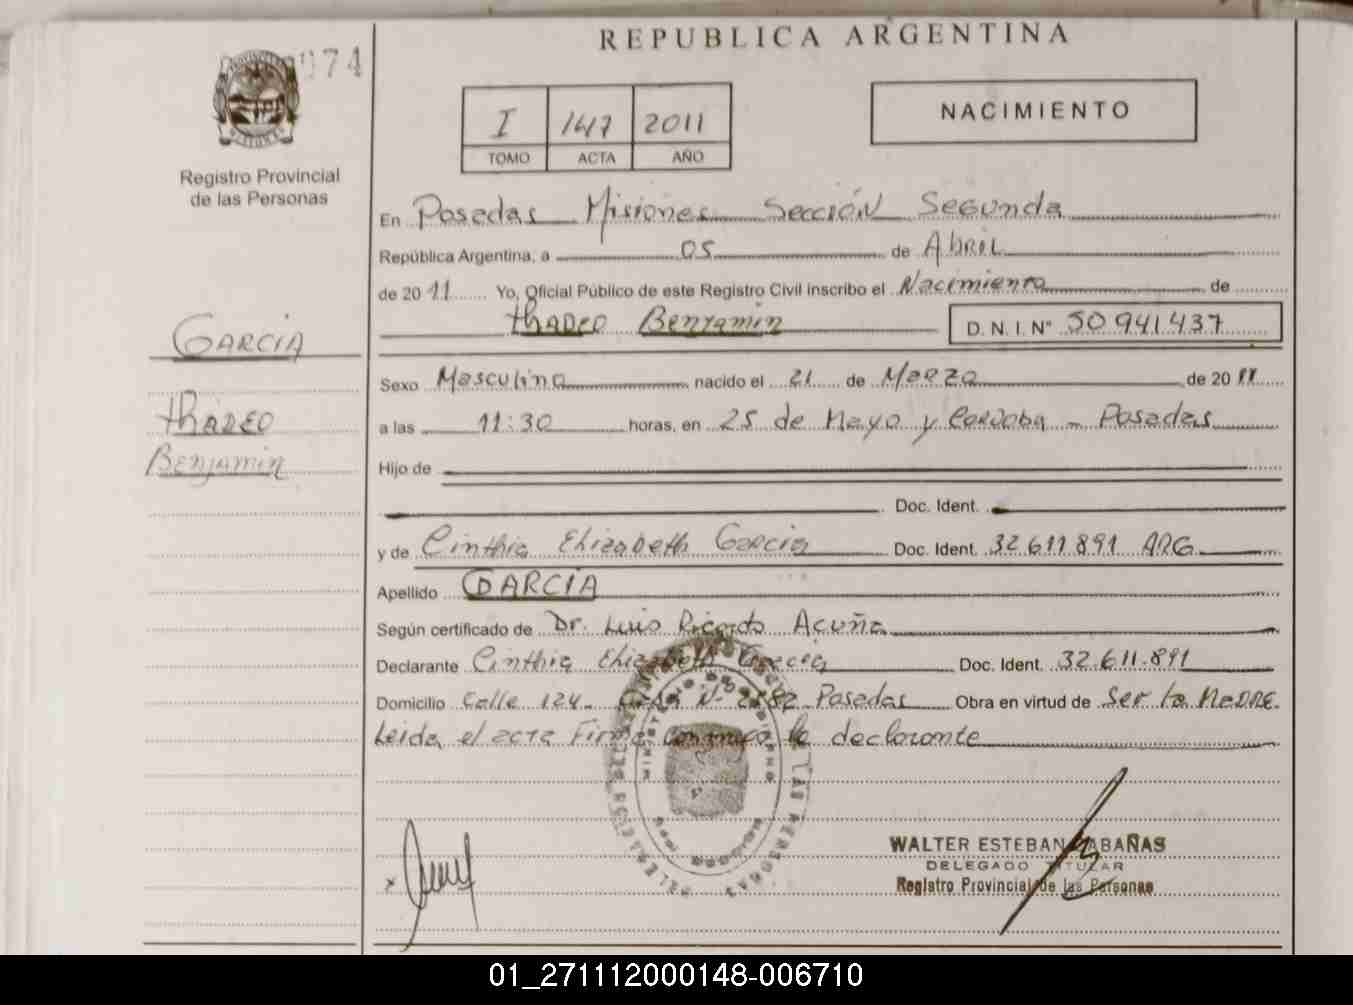 REPUBLICA ARGENTINA
074
I 147 2011
TOMO ACTA AÑO
NACIMIENTO
Registro Provincial
de las Personas
En Posadas Misiones Sección Segunda
República Argentina, a 05 de Abril
de 2011 Yo, Oficial Público de este Registro Civil inscribo el Nacimiento de
Thadeo Benjamin D.N.I. Nº 50 941 437
GARCIA
Thadeo
Benjamin
Sexo Masculino nacido el 21 de Marzo de 2011
a las 11:30 horas, en 25 de Mayo y Cordoba - Posadas
Hijo de
Doc. Ident.
y de Cinthia Elizabeth Garcia Doc. Ident. 32.611.891 ARG
Apellido GARCIA
Según certificado de Dr. Luis Ricardo Acuña
Declarante Cinthia Elizabeth Garcia Doc. Ident. 32.611.891
Domicilio Calle 124 Posadas Obra en virtud de Ser la Madre.
Leida el acta Firma la declarante
WALTER ESTEBAN CABAÑAS
DELEGADO TITULAR
Registro Provincial de las Personas
01_271112000148-006710